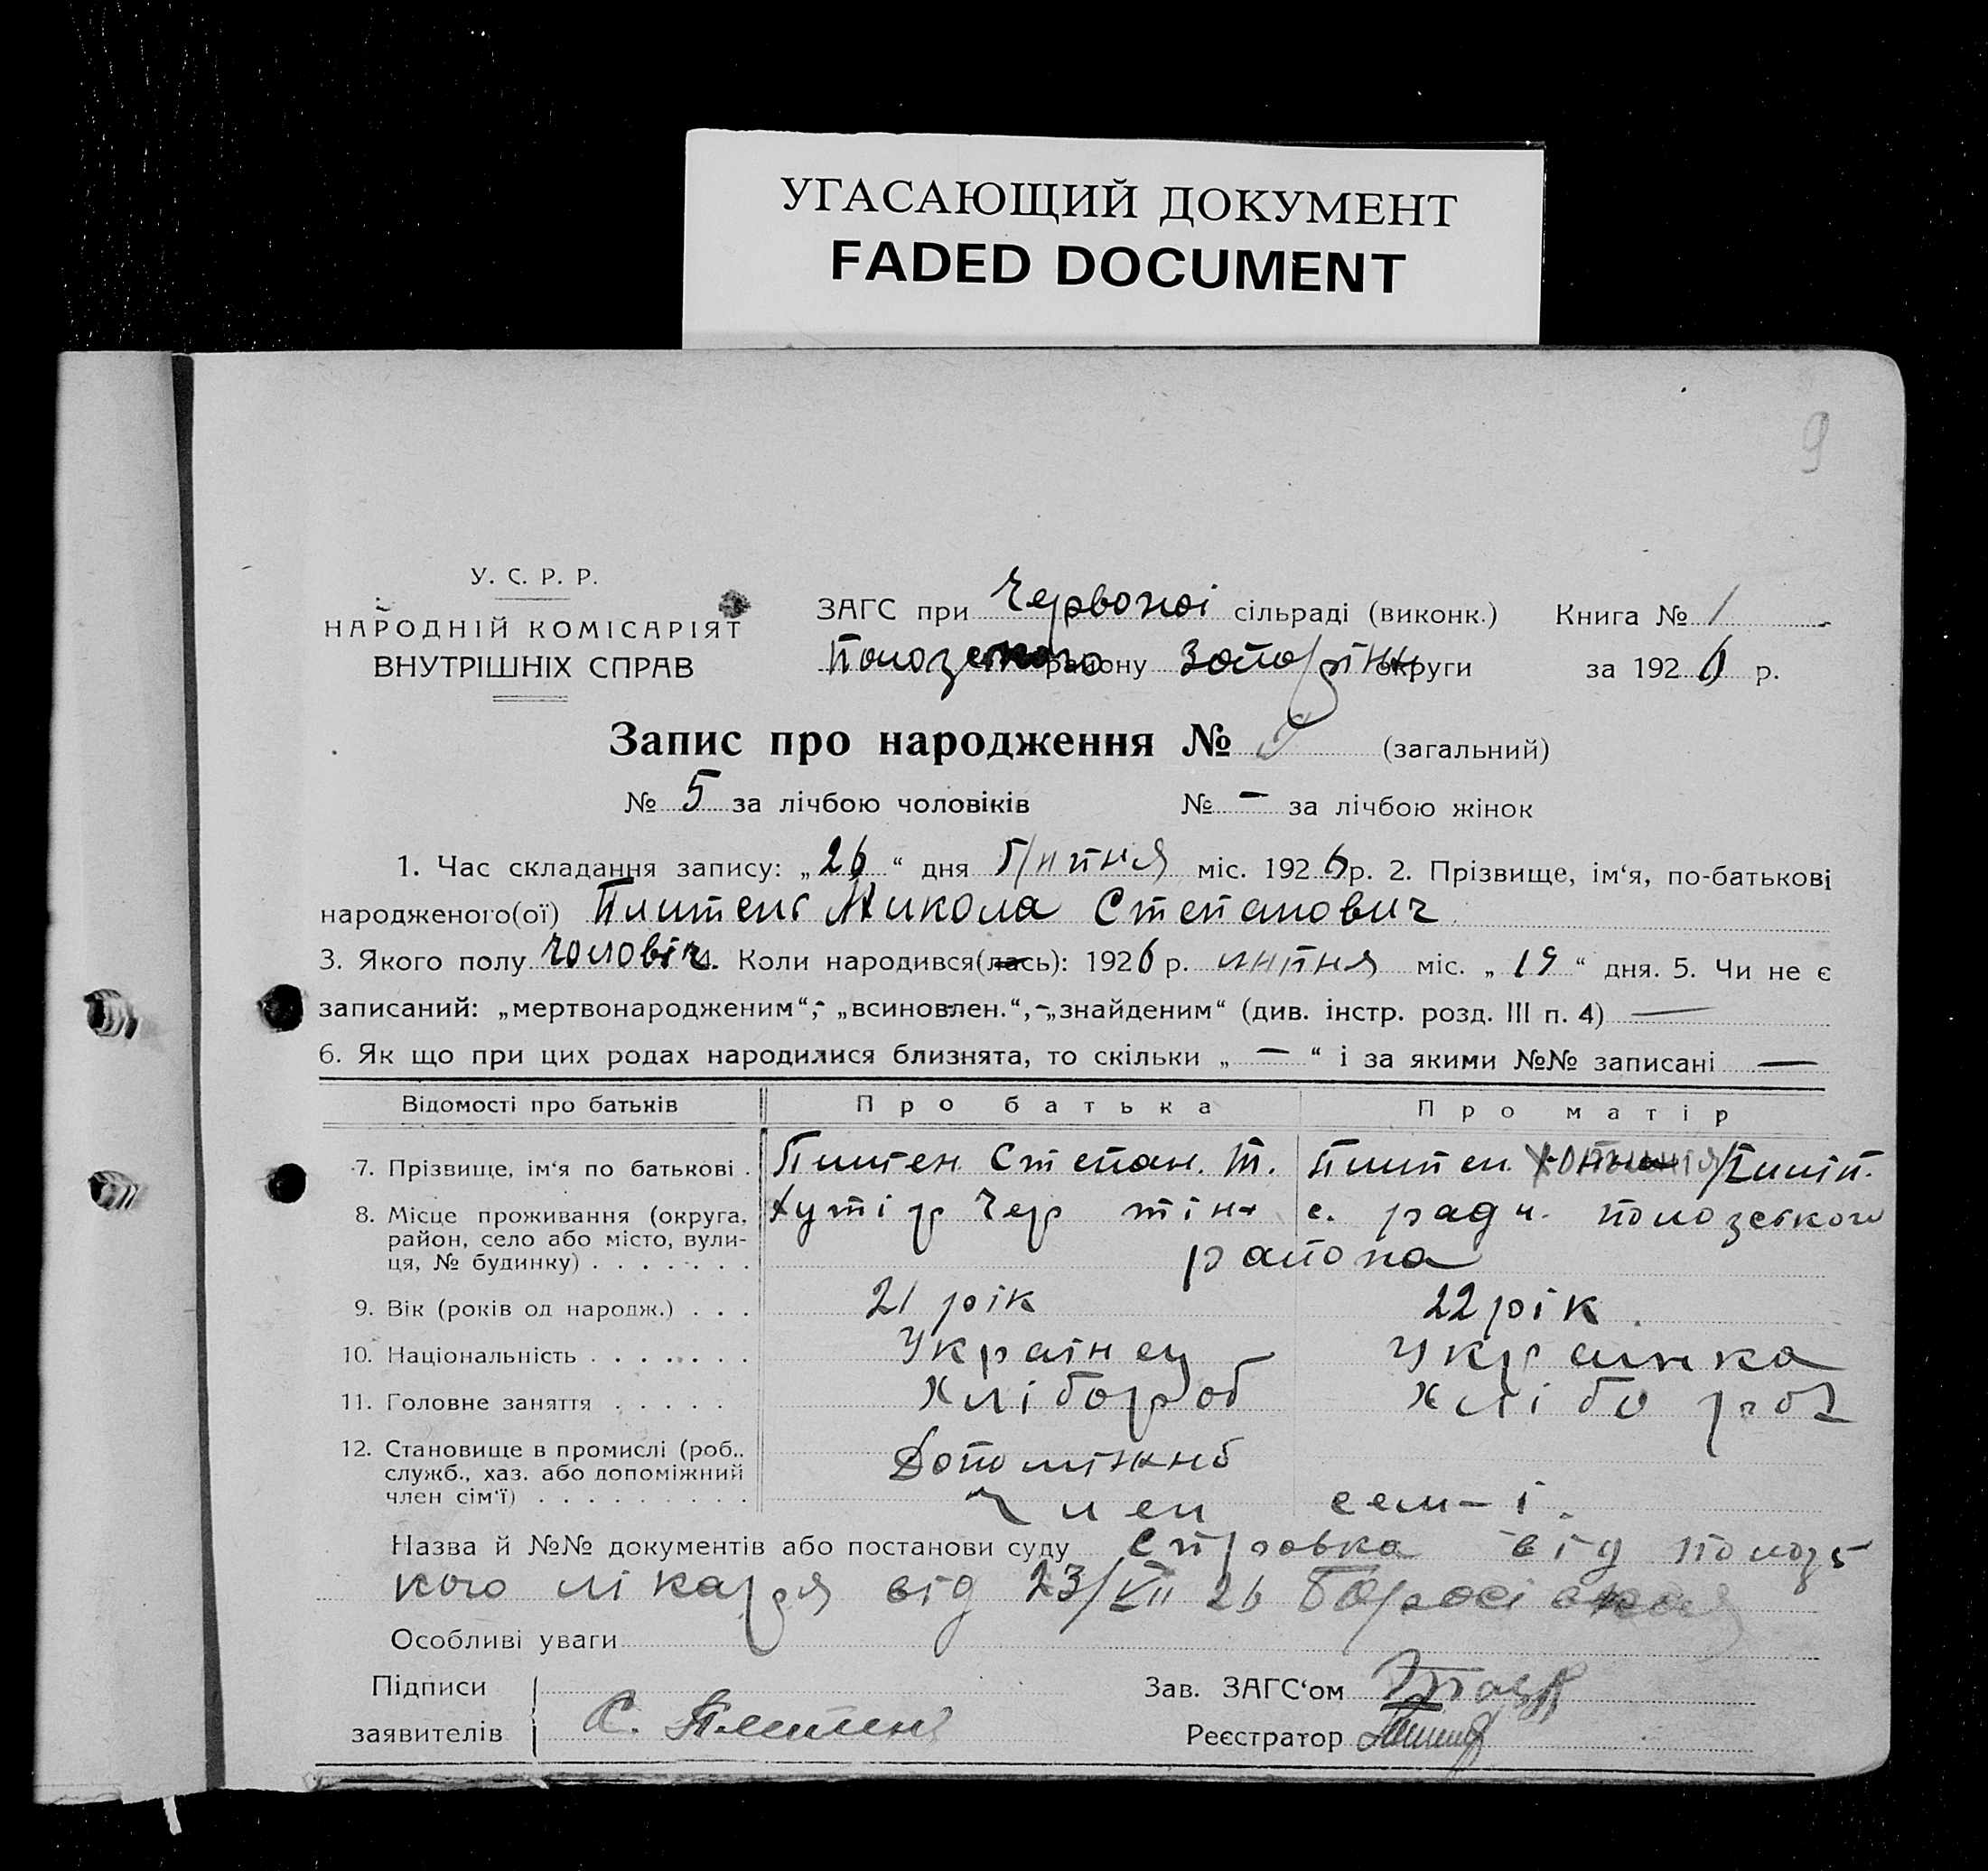 УГАСАЮЩИЙ ДОКУМЕНТ
FADED DOCUMENT
9
У. С. Р. Р.
НАРОДНІЙ КОМІСАРІЯТ
ВНУТРІШНІХ СПРАВ
ЗАГС при Червоній сільраді (виконк.) Книга № 1
району округи за 1926 р.
Запис про народження № (загальний)
№ 5 за лічбою чоловіків № — за лічбою жінок
1. Час складання запису: „26“ дня липня міс. 1926 р. 2. Прізвище, ім‘я, по-батькові
народженого(ої) Микола Степанович
3. Якого полу чоловіч. Коли народився(лась): 1926 р. липня міс. „19“ дня. 5. Чи не є
записаний: „мертвонародженим“,- „всиновлен.“,-„знайденим“ (див. інстр. розд. III п. 4) —
6. Як що при цих родах народилися близнята, то скільки „ — “ і за якими №№ записані —
Відомості про батьків Про батька Про матір
7. Прізвище, ім‘я по батькові . Степан. Т.
8. Місце проживання (округа, Хутір с. ради. пологського
район, село або місто, вули-
ця, № будинку) . . . . . . . района
9. Вік (років од народж.) . . . 21 рік 22 рік
10. Національність . . . . . . . Українец Українка
11. Головне заняття . . . . . Хлібороб хлібороб
12. Становище в промислі (роб.. Допоміжнй
служб., хаз. або допоміжний
член сім‘ї) . . . . . . . . . Член сем-і.
Назва й №№ документів або постанови суду Справка від пологс
кого лікаря від 23/VII 26
Особливі уваги
Підписи Зав. ЗАГС‘ом
заявителів С. Реєстратор